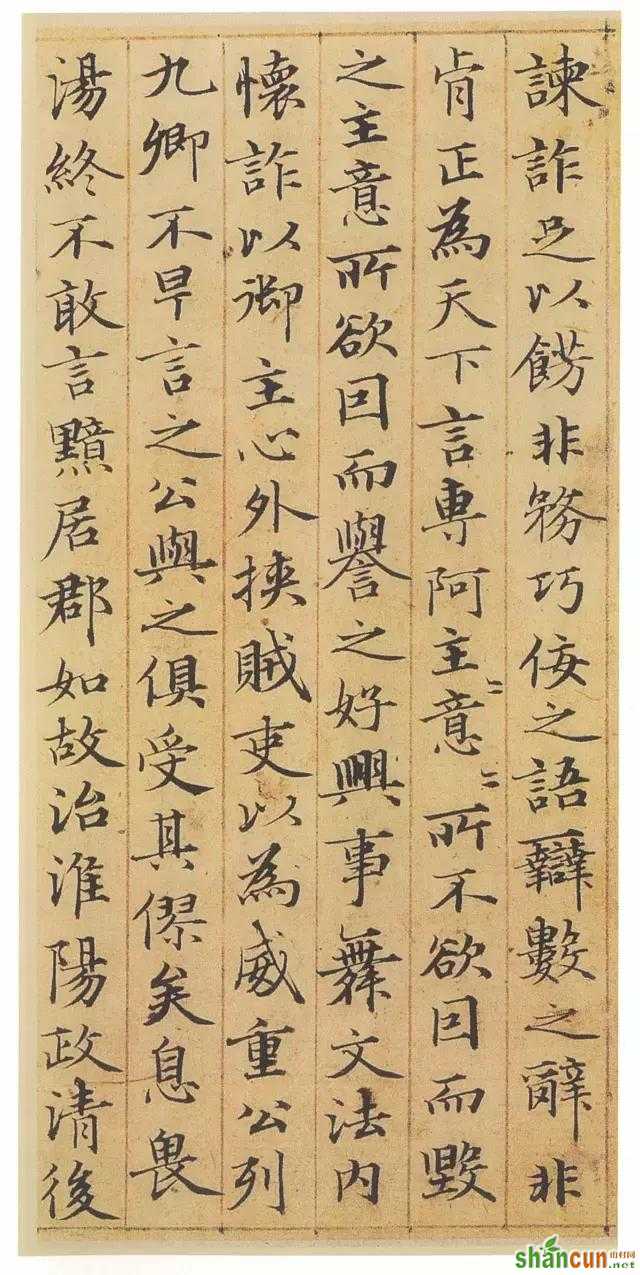 諫詐足以餙非務巧佞之語辯數之辭非
肯正為天下言專阿主〻意〻所不欲因而毀
之主意所欲因而譽之好興事舞文法內
懷詐以御主心外挾賊吏以為威重公列
九卿不早言之公與之俱受其僇矣息畏
湯終不敢言黯居郡如故治淮陽政清後
shancun
山村网
.net